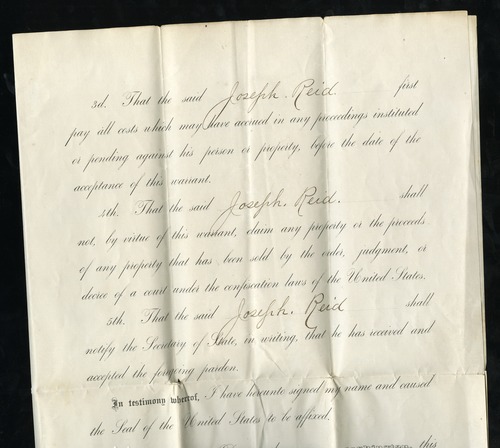 3d. That the said Joseph. Reid first
pay all costs which may have accrued in any proceedings instituted
or pending against his person or property, before the date of the
acceptance of this warrant.
4th. That the said Joseph. Reid. shall
not, by virtue of this warrant, claim any property or the proceeds
of any property that has been sold by the order, judgment, or
decree of a court under the confiscation laws of the United States.
5th. That the said Joseph. Reid shall
notify the Secretary of State, in writing, that he has received and
accepted the forgoing pardon.
In testimony whereof, I have hereunto signed my name and caused
the Seal of the United States to be affixed.
this